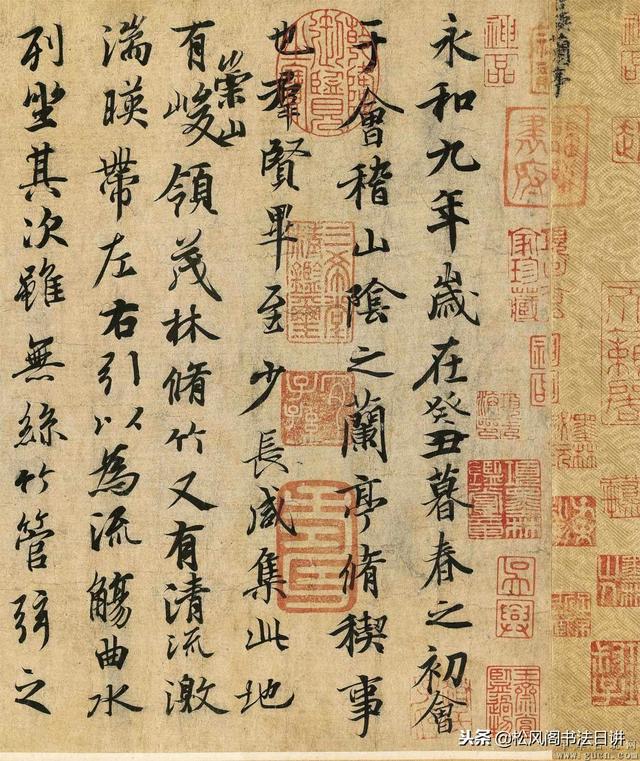 永和九年歲在癸丑暮春之初會
于會稽山陰之蘭亭脩稧事
也羣賢畢至少長咸集此地
有崇山峻領茂林脩竹又有清流激
湍暎帶左右引以為流觴曲水
列坐其次雖無絲竹管弦之
神品
書府
家珍藏
吳興
三希堂精鑑璽
头条 @松风阁书法日讲
www.gucn.com